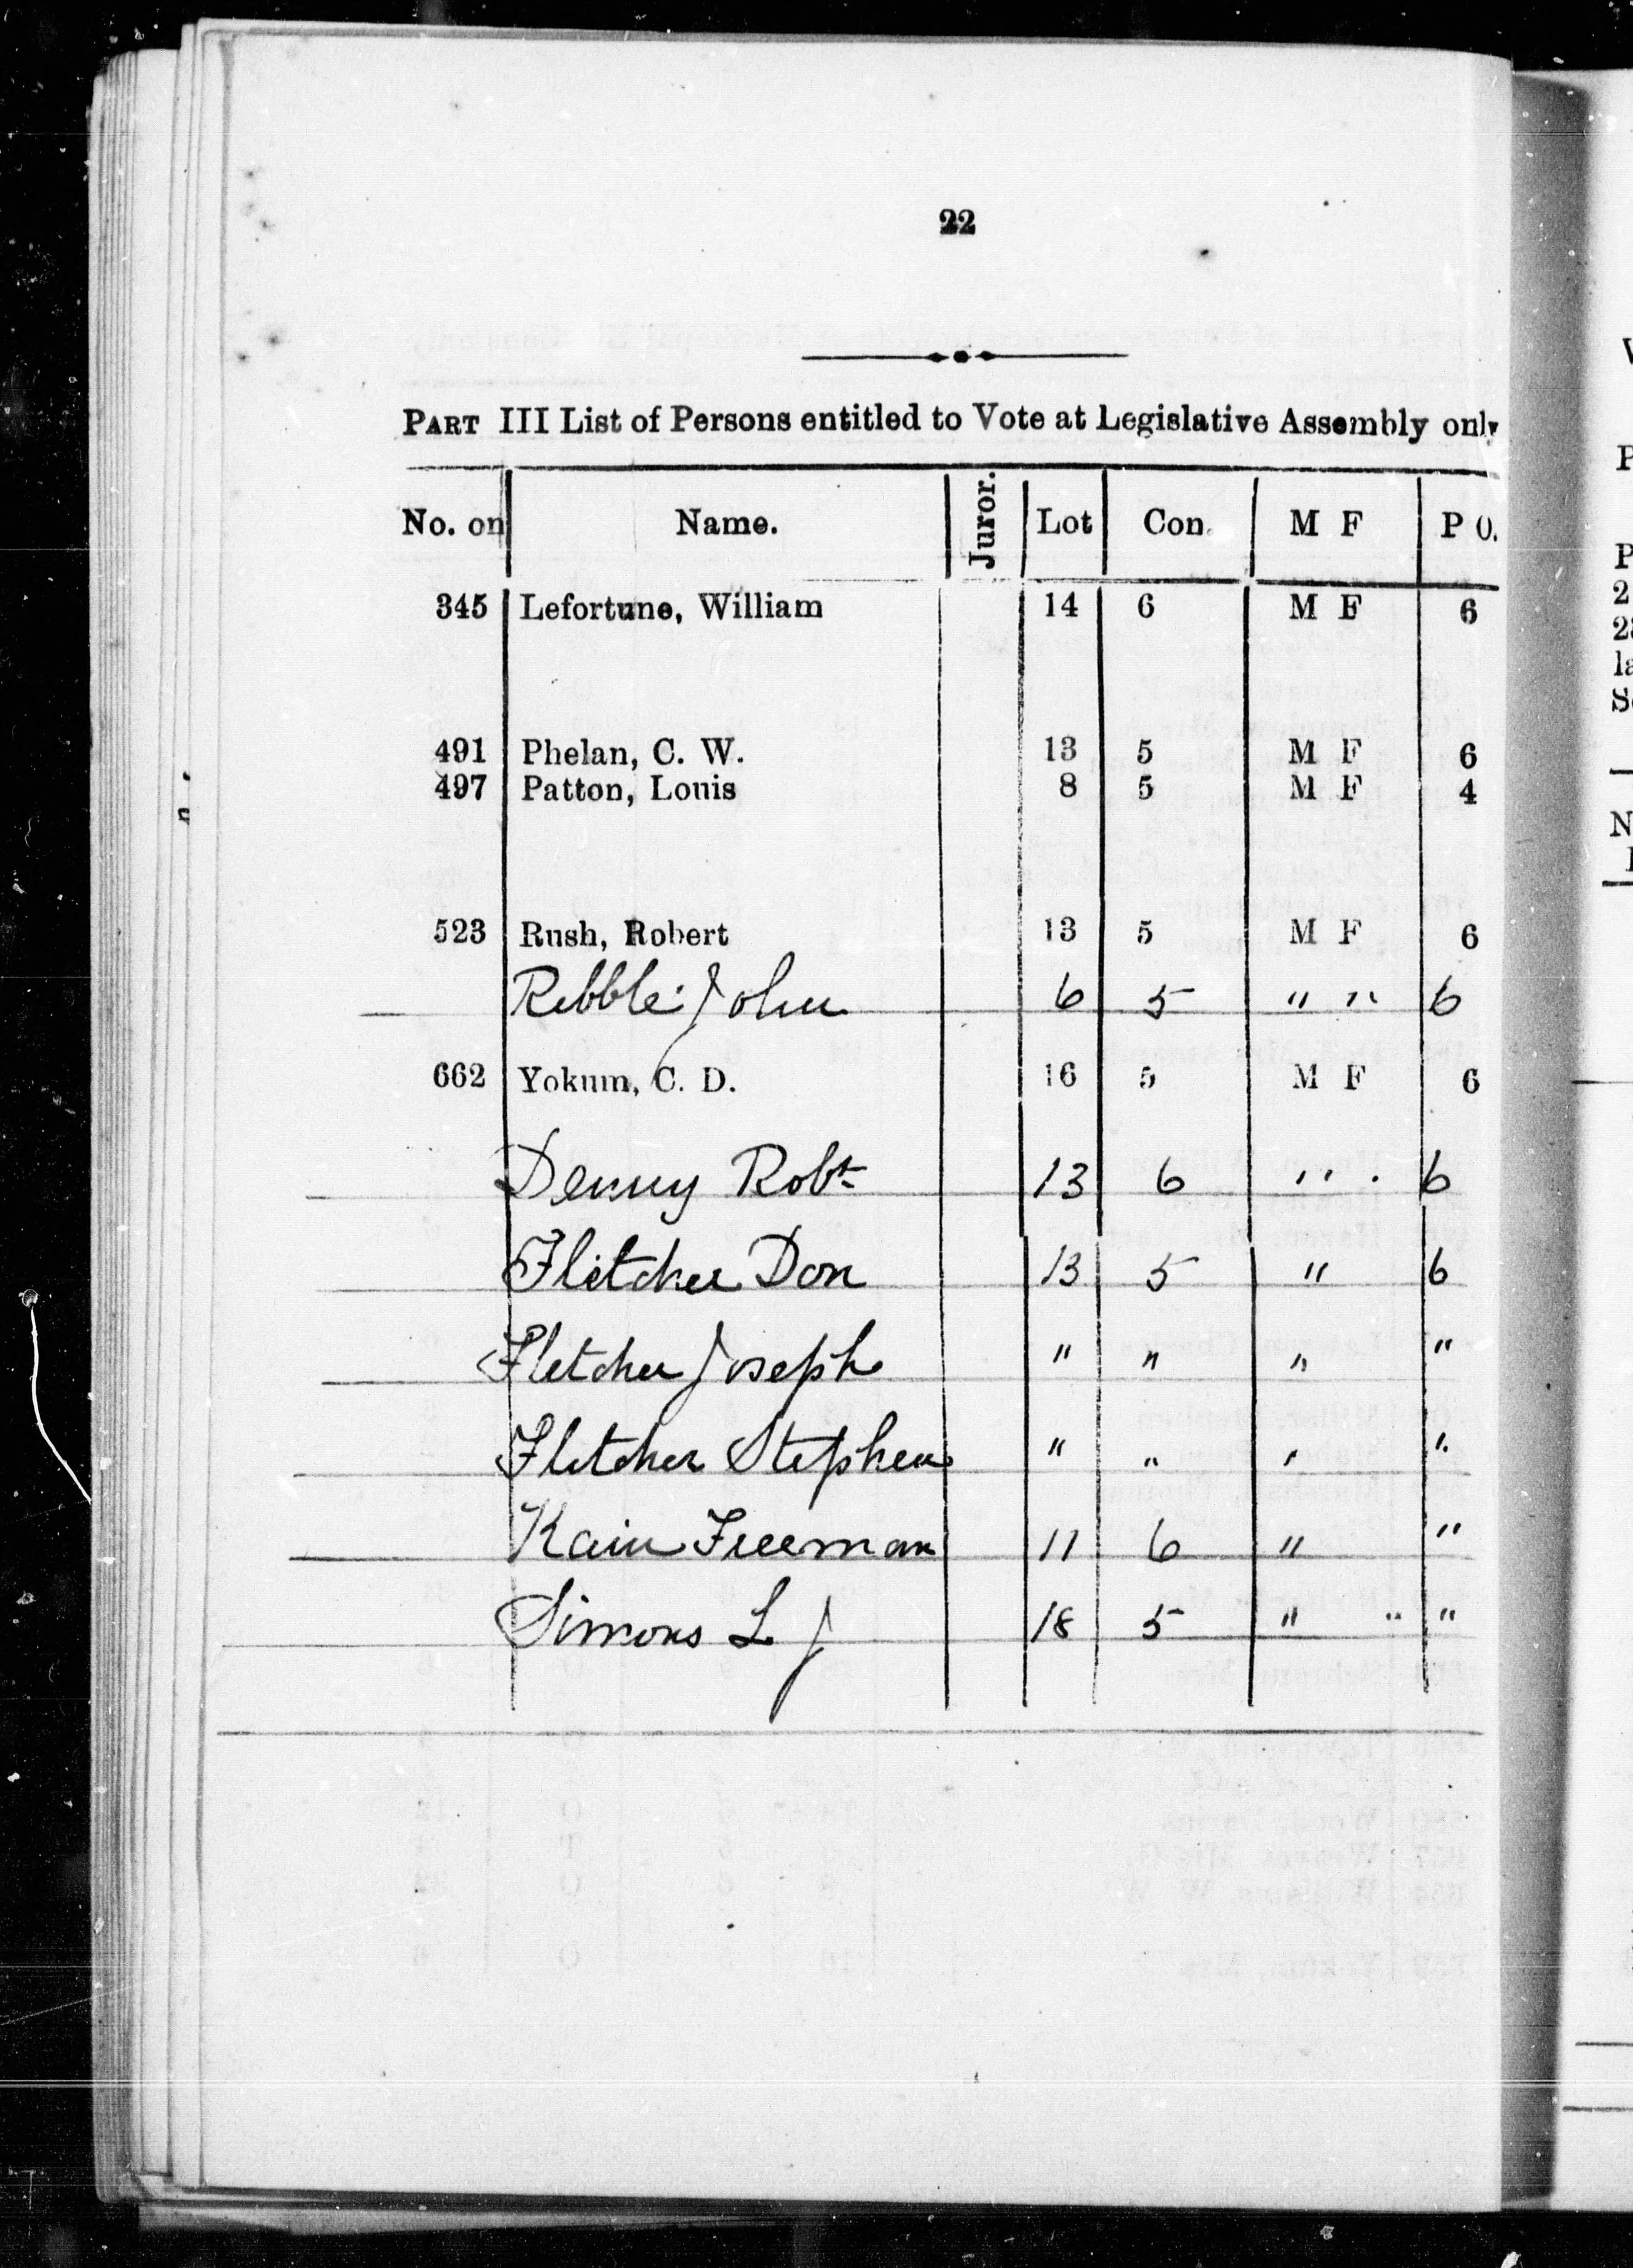 22
PART III List of Persons entitled to Vote at Legislative Assembly only
No. on Name. Juror. Lot Con. M F P O.
345 Lefortune, William 14 6 M F 6
491 Phelan, C. W. 13 5 M F 6
497 Patton, Louis 8 5 M F 4
523 Rush, Robert 13 5 M F 6
Ribble John 6 5 " " 6
662 Yokum, C. D. 16 5 M F 6
Denny Robt 13 6 " 6
Fletcher Don 13 5 " 6
Fletcher Joseph " " " "
Fletcher Stephen " " " "
Kain Freeman 11 6 " "
Simons L J 18 5 " " "